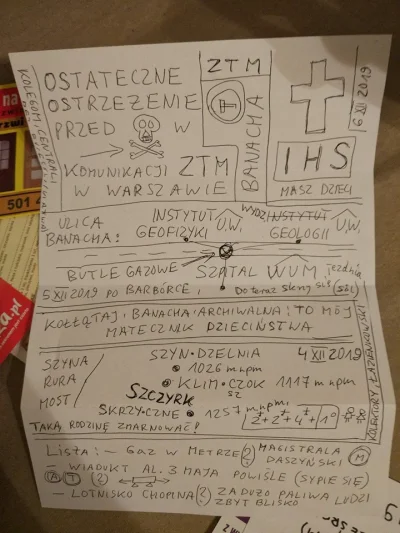 KOLEGOM, CENTRALI
OSTATECZNE
OSTRZEŻENIE
PRZED W
KOMUNIKACJI ZTM
W WARSZAWIE
ZTM
BANACHA
IHS
MASZ DZIECI
6 XII 2019
ULICA
BANACHA:
INSTYTUT
GEOFIZYKI U.W.
WYDZ. INSTYTUT
GEOLOGII U.W.
BUTLE GAZOWE
SZPITAL WUM, jezdnia
5 XII 2019 PO BARBÓRCE,
KOŁŁĄTAJ, BANACHA, ARCHIWALNA: TO MÓJ
MATECZNIK DZIECIŃSTWA
SZYNA
RURA
MOST
SZYN-DZELNIA
1026 m npm
KLIM-CZOK 1117 m npm
SZ
SZCZYRK
SKRZY-CZNE 1257 m npm
4 XII 2019
TAKĄ RODZINĘ ZMARNOWAĆ!
KOLEKTORY, ŁAZIENKOWSKI
Lista: - GAZ W METRZE ? MAGISTRALA
DASZYŃSKI M
- WIADUKT AL. 3 MAJA POWIŚLE (SYPIE SIĘ)
A T ?
- LOTNISKO CHOPINA ? ZA DUŻO PALIWA LUDZI
ZBYT BLISKO
501 4